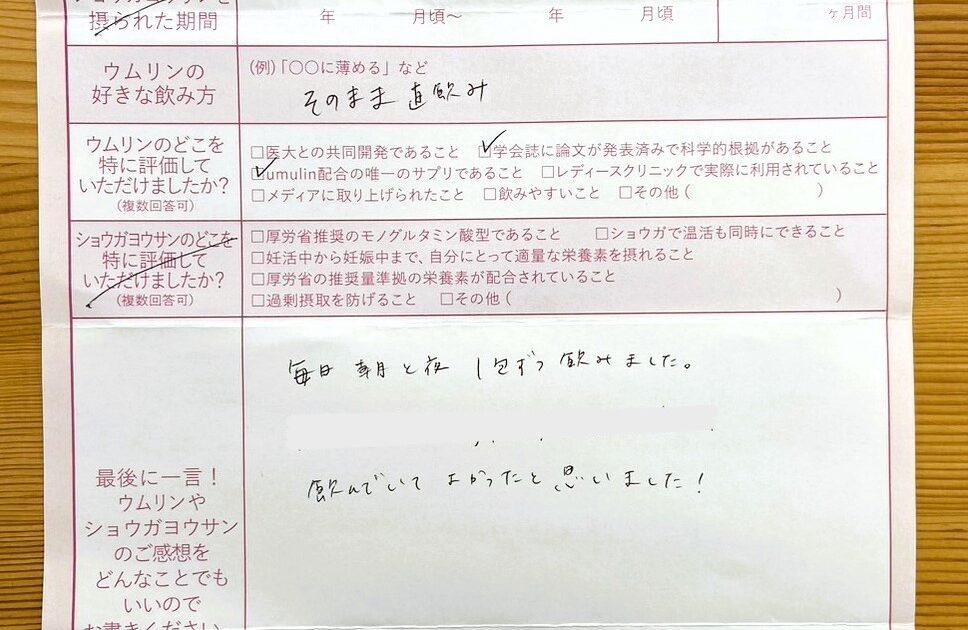 ショウガヨウサンを
摂られた期間
年 月頃～ 年 月頃
ヶ月間
ウムリンの
好きな飲み方
(例)「〇〇に薄める」など
そのまま 直飲み
ウムリンのどこを
特に評価して
いただけましたか?
(複数回答可)
□医大との共同開発であること □学会誌に論文が発表済みで科学的根拠があること
□umulin配合の唯一のサプリであること □レディースクリニックで実際に利用されていること
□メディアに取り上げられたこと □飲みやすいこと □その他( )
ショウガヨウサンのどこを
特に評価して
いただけましたか?
(複数回答可)
□厚労省推奨のモノグルタミン酸型であること □ショウガで温活も同時にできること
□妊活中から妊娠中まで、自分にとって適量な栄養素を摂れること
□厚労省の推奨量準拠の栄養素が配合されていること
□過剰摂取を防げること □その他( )
最後に一言!
ウムリンや
ショウガヨウサン
のご感想を
どんなことでも
いいので
お書きください。
毎日 朝と夜 1包ずつ 飲みました。
飲んでいて よかったと 思いました!